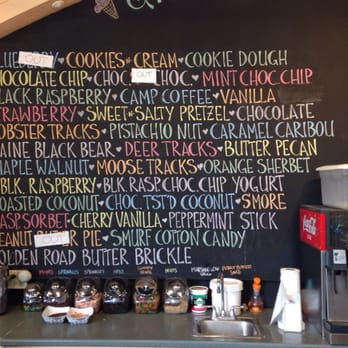 LUEBERRY OUT COOKIES N CREAM ♥ COOKIE DOUGH
HOCOLATE CHIP ♥ CHOC. OUT CHOC. ♥ MINT CHOC CHIP
LACK RASPBERRY ♥ CAMP COFFEE ♥ VANILLA
TRAWBERRY ♥ SWEET N SALTY PRETZEL ♥ CHOCOLATE
OBSTER TRACKS ♥ PISTACHIO NUT ♥ CARAMEL CARIBOU
AINE BLACK BEAR ♥ DEER TRACKS ♥ BUTTER PECAN
APLE WALNUT ♥ MOOSE TRACKS ♥ ORANGE SHERBET
BLK. RASPBERRY ♥ BLK RASP. CHOC. CHIP YOGURT
OASTED COCONUT ♥ CHOC. TST'D COCONUT ♥ SMORE
ASP. SORBET ♥ CHERRY VANILLA ♥ PEPPERMINT STICK
EANUT OUT R PIE ♥ SMURF COTTON CANDY
OLDEN ROAD BUTTER BRICKLE
SPRINKLES SPRINKLES GUMMY
Coca-Cola